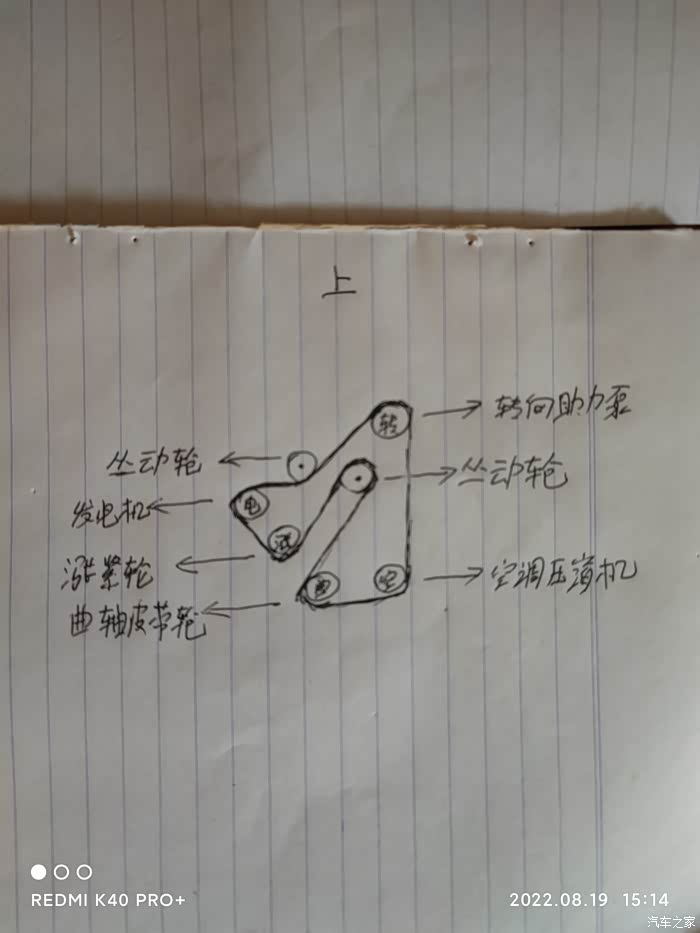 上
转向助力泵
转
丛动轮
丛动轮
发电机
电
涨紧轮
涨
空调压缩机
空
曲轴皮带轮
曲
REDMI K40 PRO+
2022.08.19 15:14
汽车之家